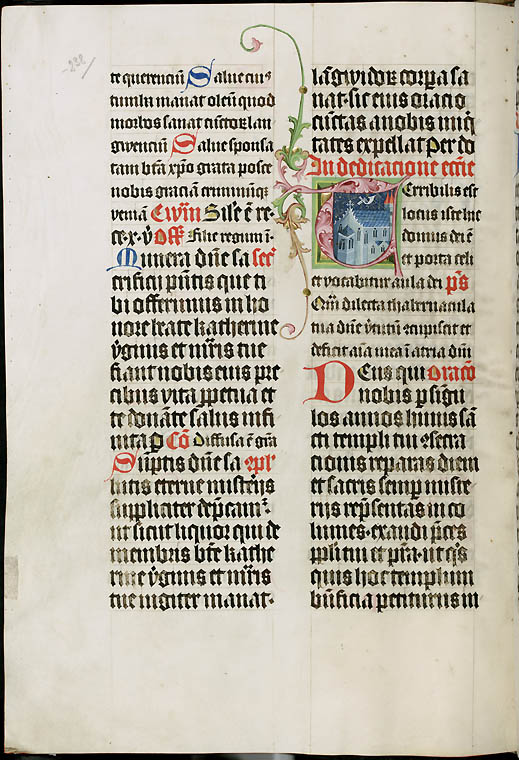 238
te querenciū Salue cuiꝰ
tumulꝰ manat oleū quod
morbos sanat cūctoꝝ lan
gwenciū Salue sponsa
tam bt̄a xp̄o grata posce
nobis graciā criminūqꝫ
veniā Ewn̄ Sil'e ē re
Off̄ Filie regum ī
Munera dn̄e sa secr̄
crificii pn̄tis que ti
bi offerimus in ho
nore beate katherine
v̓ginis et mr̄is tue
fiant nobis eius pre
cibus vita ꝑpetua et
te donāte salus infi
nita ꝑ Cō Diffusa ē grā
Sūptis dn̄e sa cp̄l
lutis eterne misteriis
suppliciter dep̄cam̄ꝰ
ut sicut liquor qui de
membris bt̄e kathe
rine v̓ginis et mr̄is
tue iugiter manat
lāgwidoꝝ corꝑa sa
nat sic eius oracio
cūctas a nobis iniq̄
tates expellat Per do
In dedicacione eccīe
Terribilis est
locus iste hic
domus dei ē
et porta celi
et vocabitur aula dei p̄s
Qm̄ dilecta thabernacula
tua dn̄e v̓tutū cōcupiscit et
deficit aīa mea ī atria dn̄i
Deus qui Oracō
nobis ꝑ sigu
los annos huius sā
cti templi tui ꝯsecra
cionis reparas diem
et sacris semꝑ miste
riis rep̄sentas in co
lumes exaudi p̄ces
ppl̄i tui et p̄ra ut q̄s
quis hoc templum
bn̄ficia petiturus in